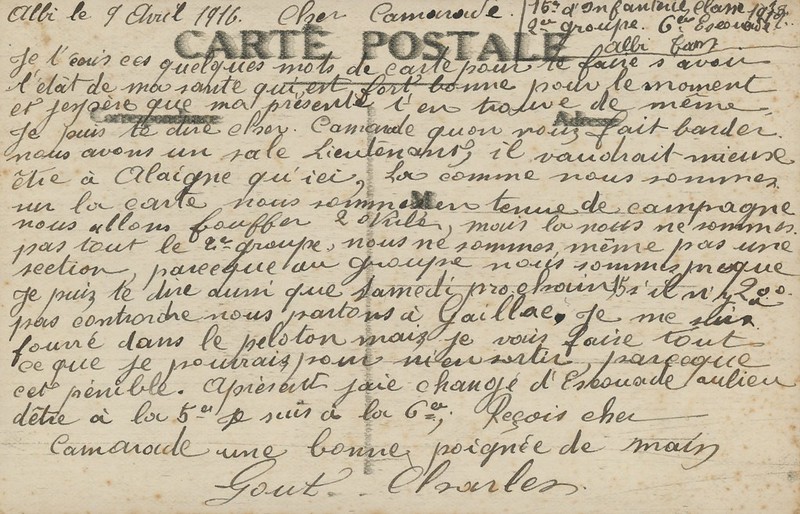 Albi le 9 Avril 1916. Cher Camarade.
15e d'Infanterie Classe 1917
2e groupe. 6e Escouade
albi Tarn
CARTE POSTALE
Je t'écris ces quelques mots de carte pour te faire s'avoir
l'état de ma santé qui est fort bonne pour le moment
et j'espère que ma présente t'en trouve de même
Correspondance
Adresse
Je puis te dire cher. Camarade qu'on nouz fait barder.
nous avons un sale Lieutenant, il vaudrait mieux
être à Alaigne qu'ici, La comme nous sommes
sur la carte nous sommes en tenue de campagne
M
nous allons bouffer 2 , mais la nous ne sommes
pas tout le 2e groupe, nous ne sommes même pas une
section, parceque au groupe nous sommez presque
200.
Je puiz te dire aussi que Samedi prochain 15 s'il n'y a
pas contrordre nous partons à Gaillac. Je me suis
fourré dans le peloton maiz je vais faire tout
ce que je pourrais pour m'en sortir parceque
cet pénible. Aprésent jaie changé d'Escouade aulieu
dêtre à la 5e je suis à la 6e, Reçois cher
Camarade une bonne poignée de main
Gout Charles.